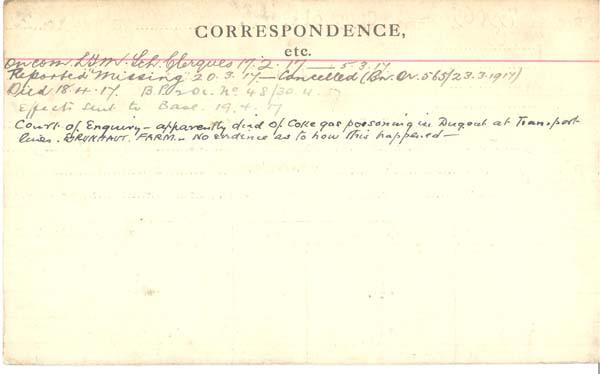 CORRESPONDENCE,
etc.
On com. Sch. Clerques 17.2.17 — 5.3.17
Reported "Missing" 20.3.17 — Cancelled (Bn. Or. 565/23.3.1917)
Died 18.4.17. No 48/30.4.17
Effects sent to Base. 19.4.17
Court of Enquiry – apparently died of Coke gas poisoning in Dugout at Transport
lines. FARM – No evidence as to how this happened –